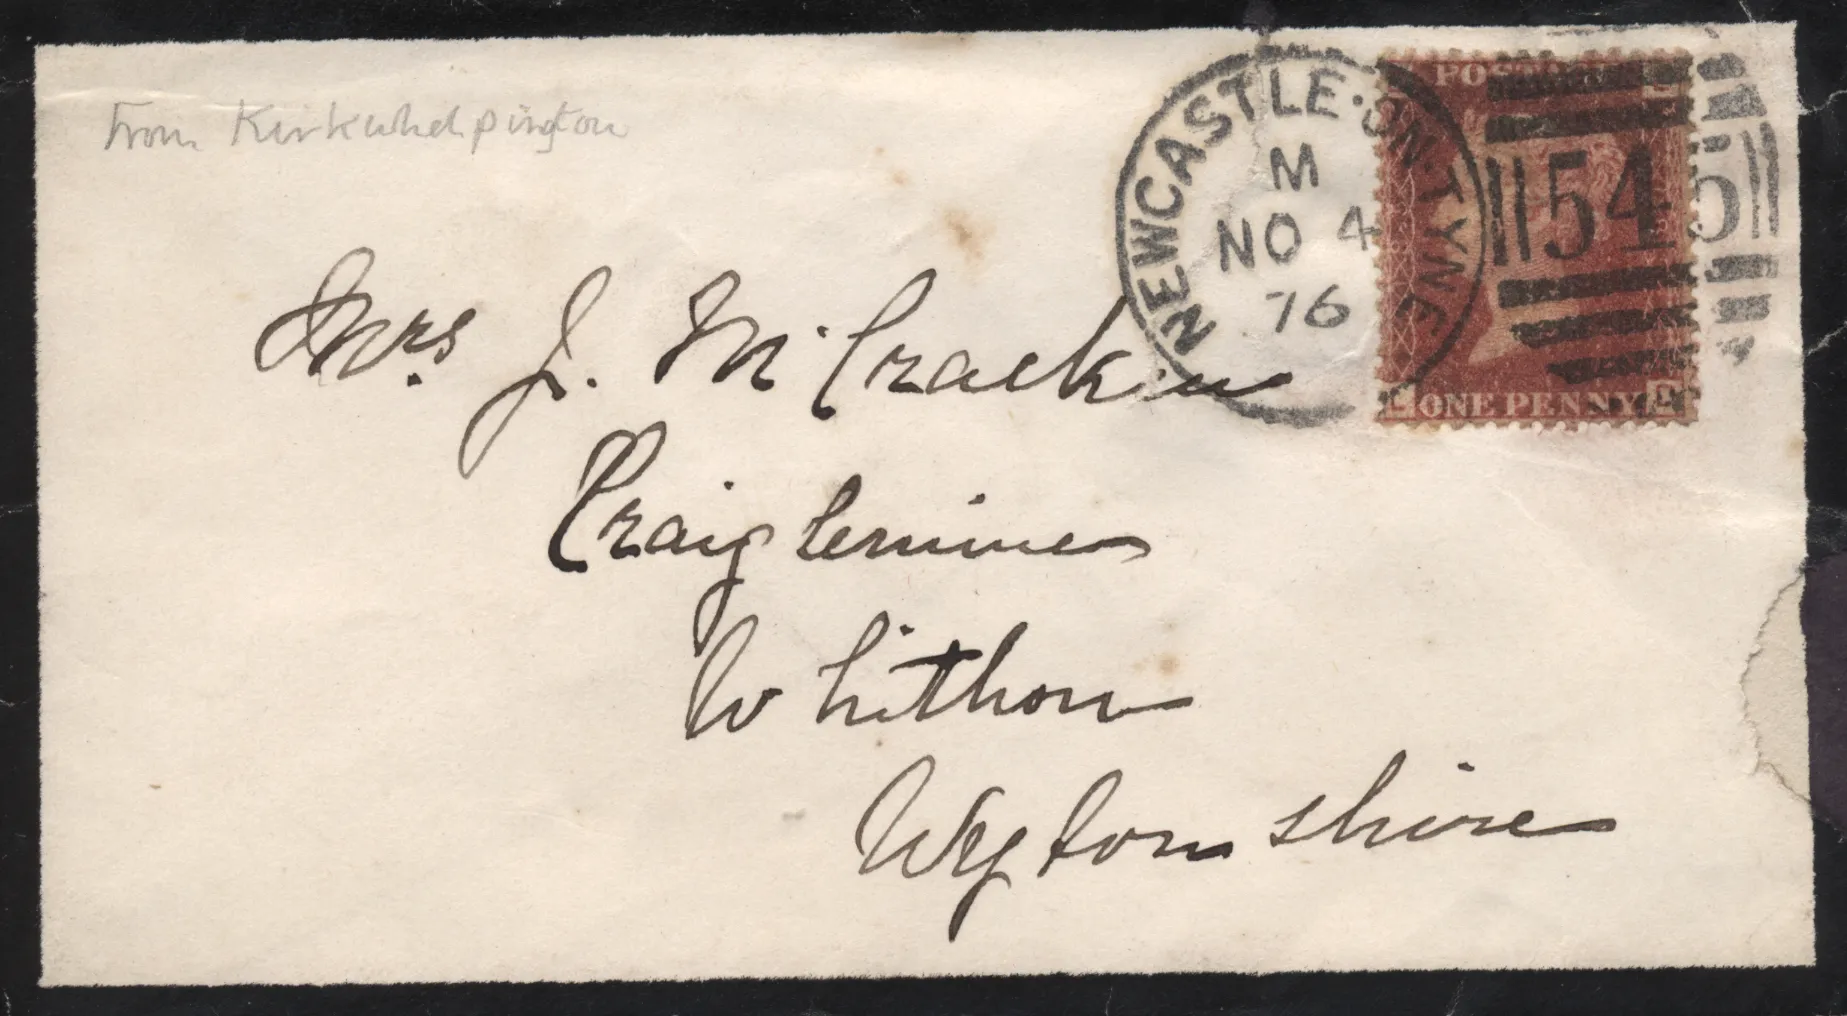 From Kirkwhelpington
NEWCASTLE·ON·TYNE
M
NO 4
76
545
POSTAGE
ONE PENNY
Mrs. J. McCrackin
Craiglemine
Whithorn
Wigtonshire